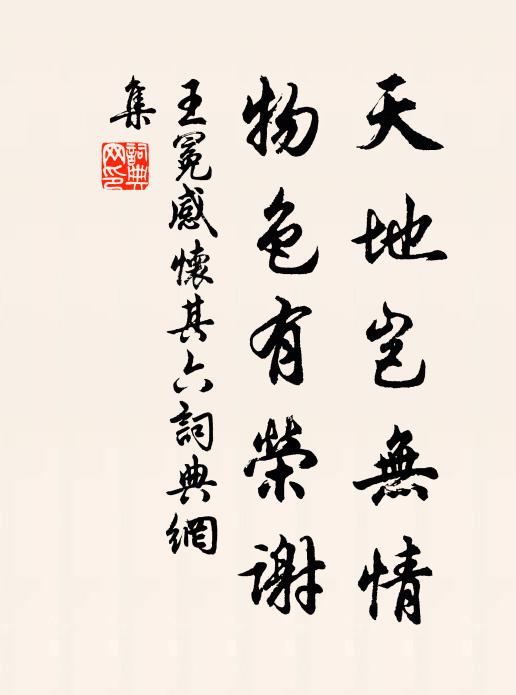 天地岂無情
物色有榮謝
王冕感懷其六詞典網
集
詞典網印